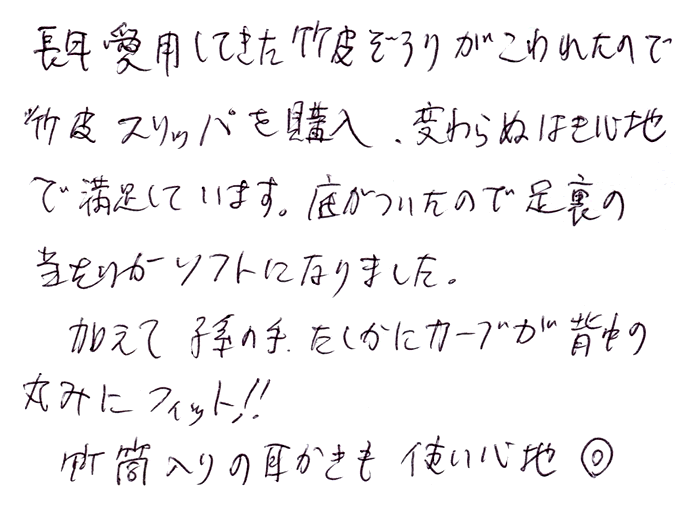 長年愛用してきた竹皮ぞうりがこわれたので
竹皮スリッパを購入、変わらぬはき心地
で満足しています。底がついたので足裏の
当たりがソフトになりました。
加えて孫の手、たしかにカーブが背中の
丸みにフィット!!
竹筒入りの耳かきも使い心地◎